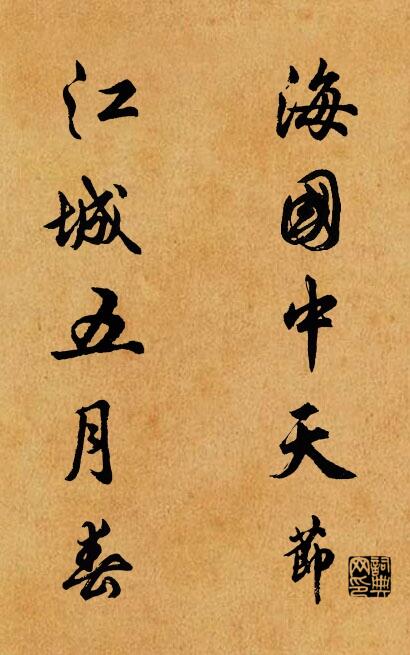 海國中天節
江城五月春
詞典網印